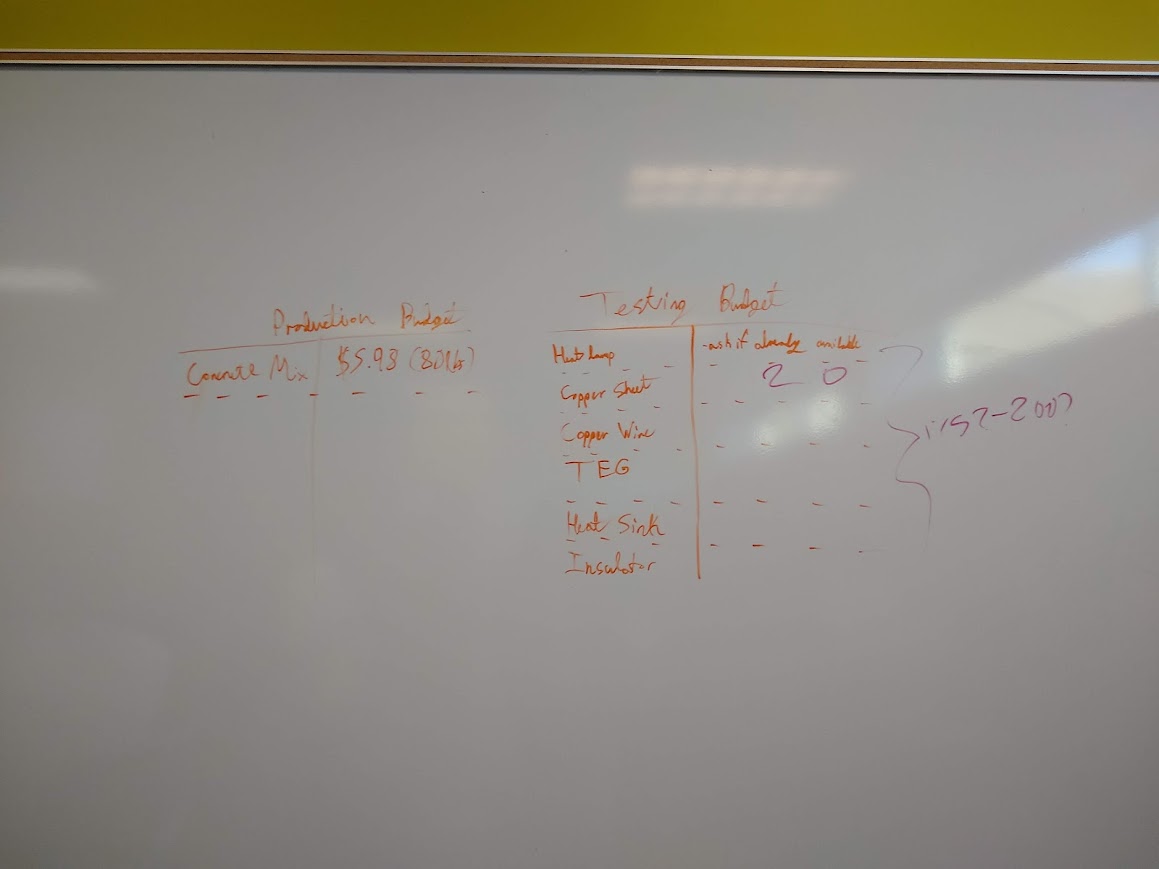 Production Budget
Concrete Mix $5.98 (80lbs)
Testing Budget
Heat lamp -ask if already available
Copper Sheet 20
Copper Wire
TEG
Heat Sink
Insulator